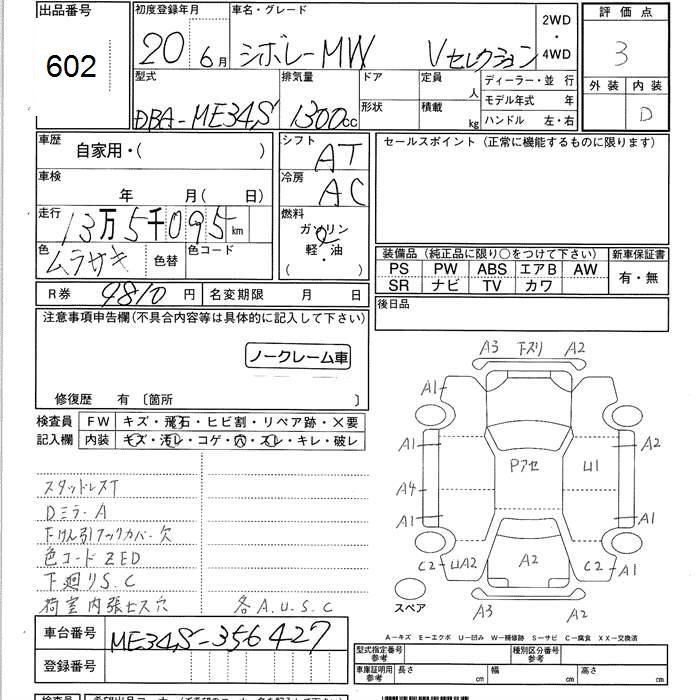 出品番号 初度登録年月 車名・グレード 2WD 評価点
602 20 6月 シボレーMW Vセレクション ・ 3
4WD
型式 排気量 ドア 定員 人 ディーラー・並 行 外装 内装
DBA-ME34S 1300cc 形状 積載 kg モデル年式 年 D
ハンドル 左・右
車歴 自家用・( ) シフト AT セールスポイント (正常に機能するものに限ります)
車検 年 月(日) 冷房 AC
走行 13万5千095km 燃料 ガソリン
色 ムラサキ 色替 色コード 軽・油
( ・ )
装備品 (純正品に限り○をつけて下さい) 新車保証書
PS PW ABS エアB AW 有・無
SR ナビ TV カワ
R券 9810円 名変期限 月 日 後日品
注意事項申告欄(不具合内容等は具体的に記入して下さい)
ノークレーム車
修復歴 有 〔箇所 〕
検査員 FW キズ・飛石・ヒビ割・リペア跡・×要
記入欄 内装 キズ・汚レ・コゲ・穴・スレ・キレ・破レ
スタッドレスT
Dミラー A
下けん引フックカバー欠
色コード ZED
下廻りS.C
荷室内張セス穴 各A.U.S.C
A3 下スリ A2
A1
A1 Pアセ U1 A2
A4
A1 A1
C2 UA2 A2 C2 A1
スペア A3 A2
A―キズ E―エクボ U―凹み W―補修跡 S―サビ C―腐食 XX―交換済
車台番号 ME34S-356427
登録番号
型式指定番号 参考 種別区分番号 参考
車庫証明用 参考 長さ cm 幅 cm 高さ cm
検査員